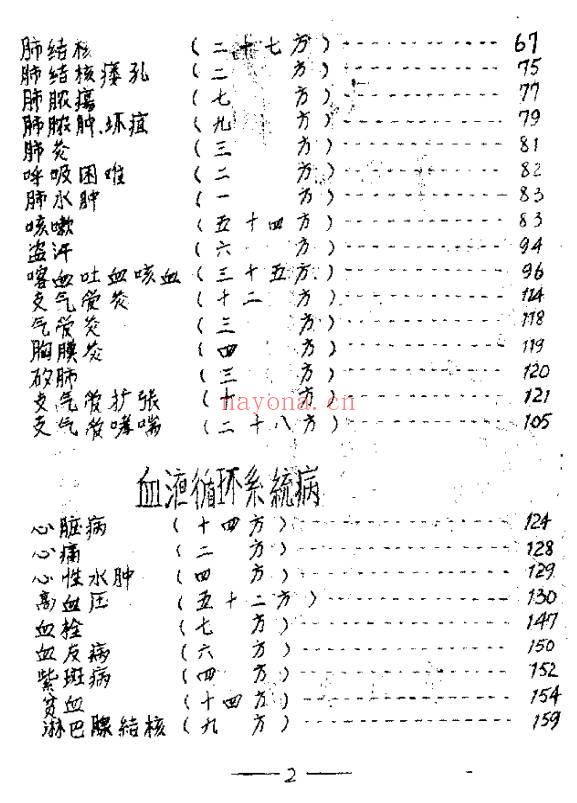 肺结核 (二十七方) 67
肺结核瘘孔 (二方) 75
肺脓疡 (七方) 77
肺脓肿、坏疽 (九方) 79
肺炎 (三方) 81
呼吸困难 (二方) 82
肺水肿 (一方) 83
咳嗽 (五十四方) 83
盗汗 (六方) 94
喀血吐血咳血 (三十五方) 96
支气管炎 (十二方) 114
气管炎 (三方) 118
胸膜炎 (四方) 119
矽肺 (三方) 120
支气管扩张 (十方) 121
支气管哮喘 (二十八方) 105
nayona.cn
血液循环系統病
心脏病 (十四方) 124
心痛 (二方) 128
心性水肿 (四方) 129
高血压 (五十二方) 130
血栓 (七方) 147
血友病 (六方) 150
紫斑病 (四方) 152
贫血 (十四方) 154
淋巴腺結核 (九方) 159
— 2 —